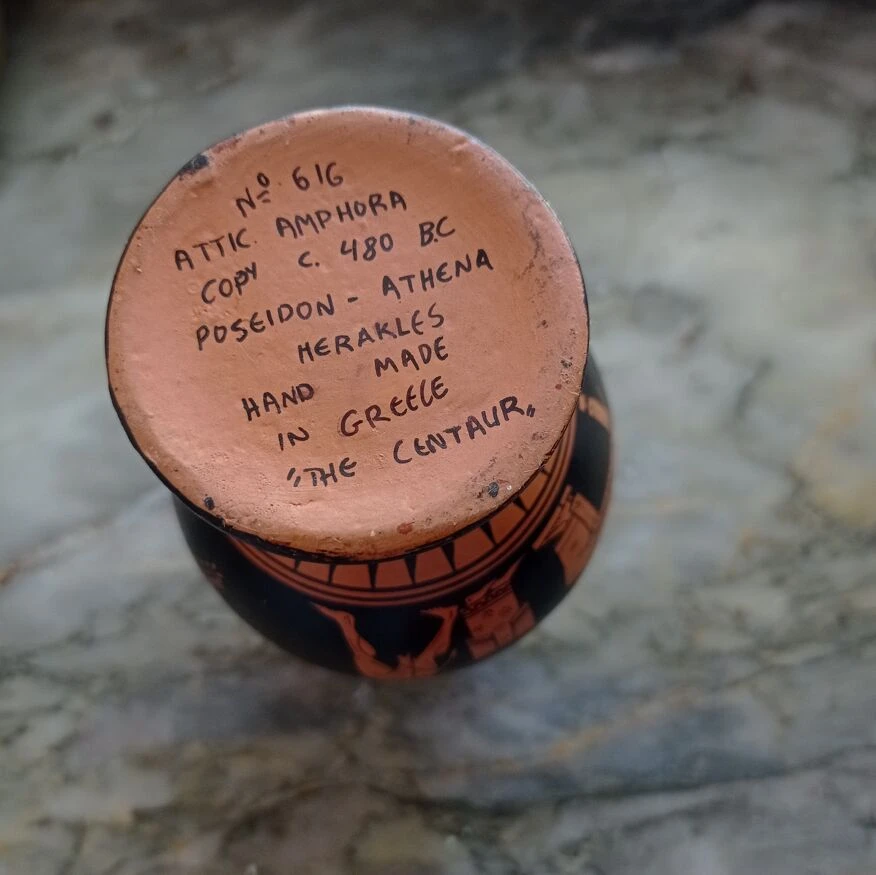 Nº 616
ATTIC AMPHORA
COPY c. 480 B.C
POSEIDON - ATHENA
HERAKLES
HAND MADE
IN GREECE
"THE CENTAUR"